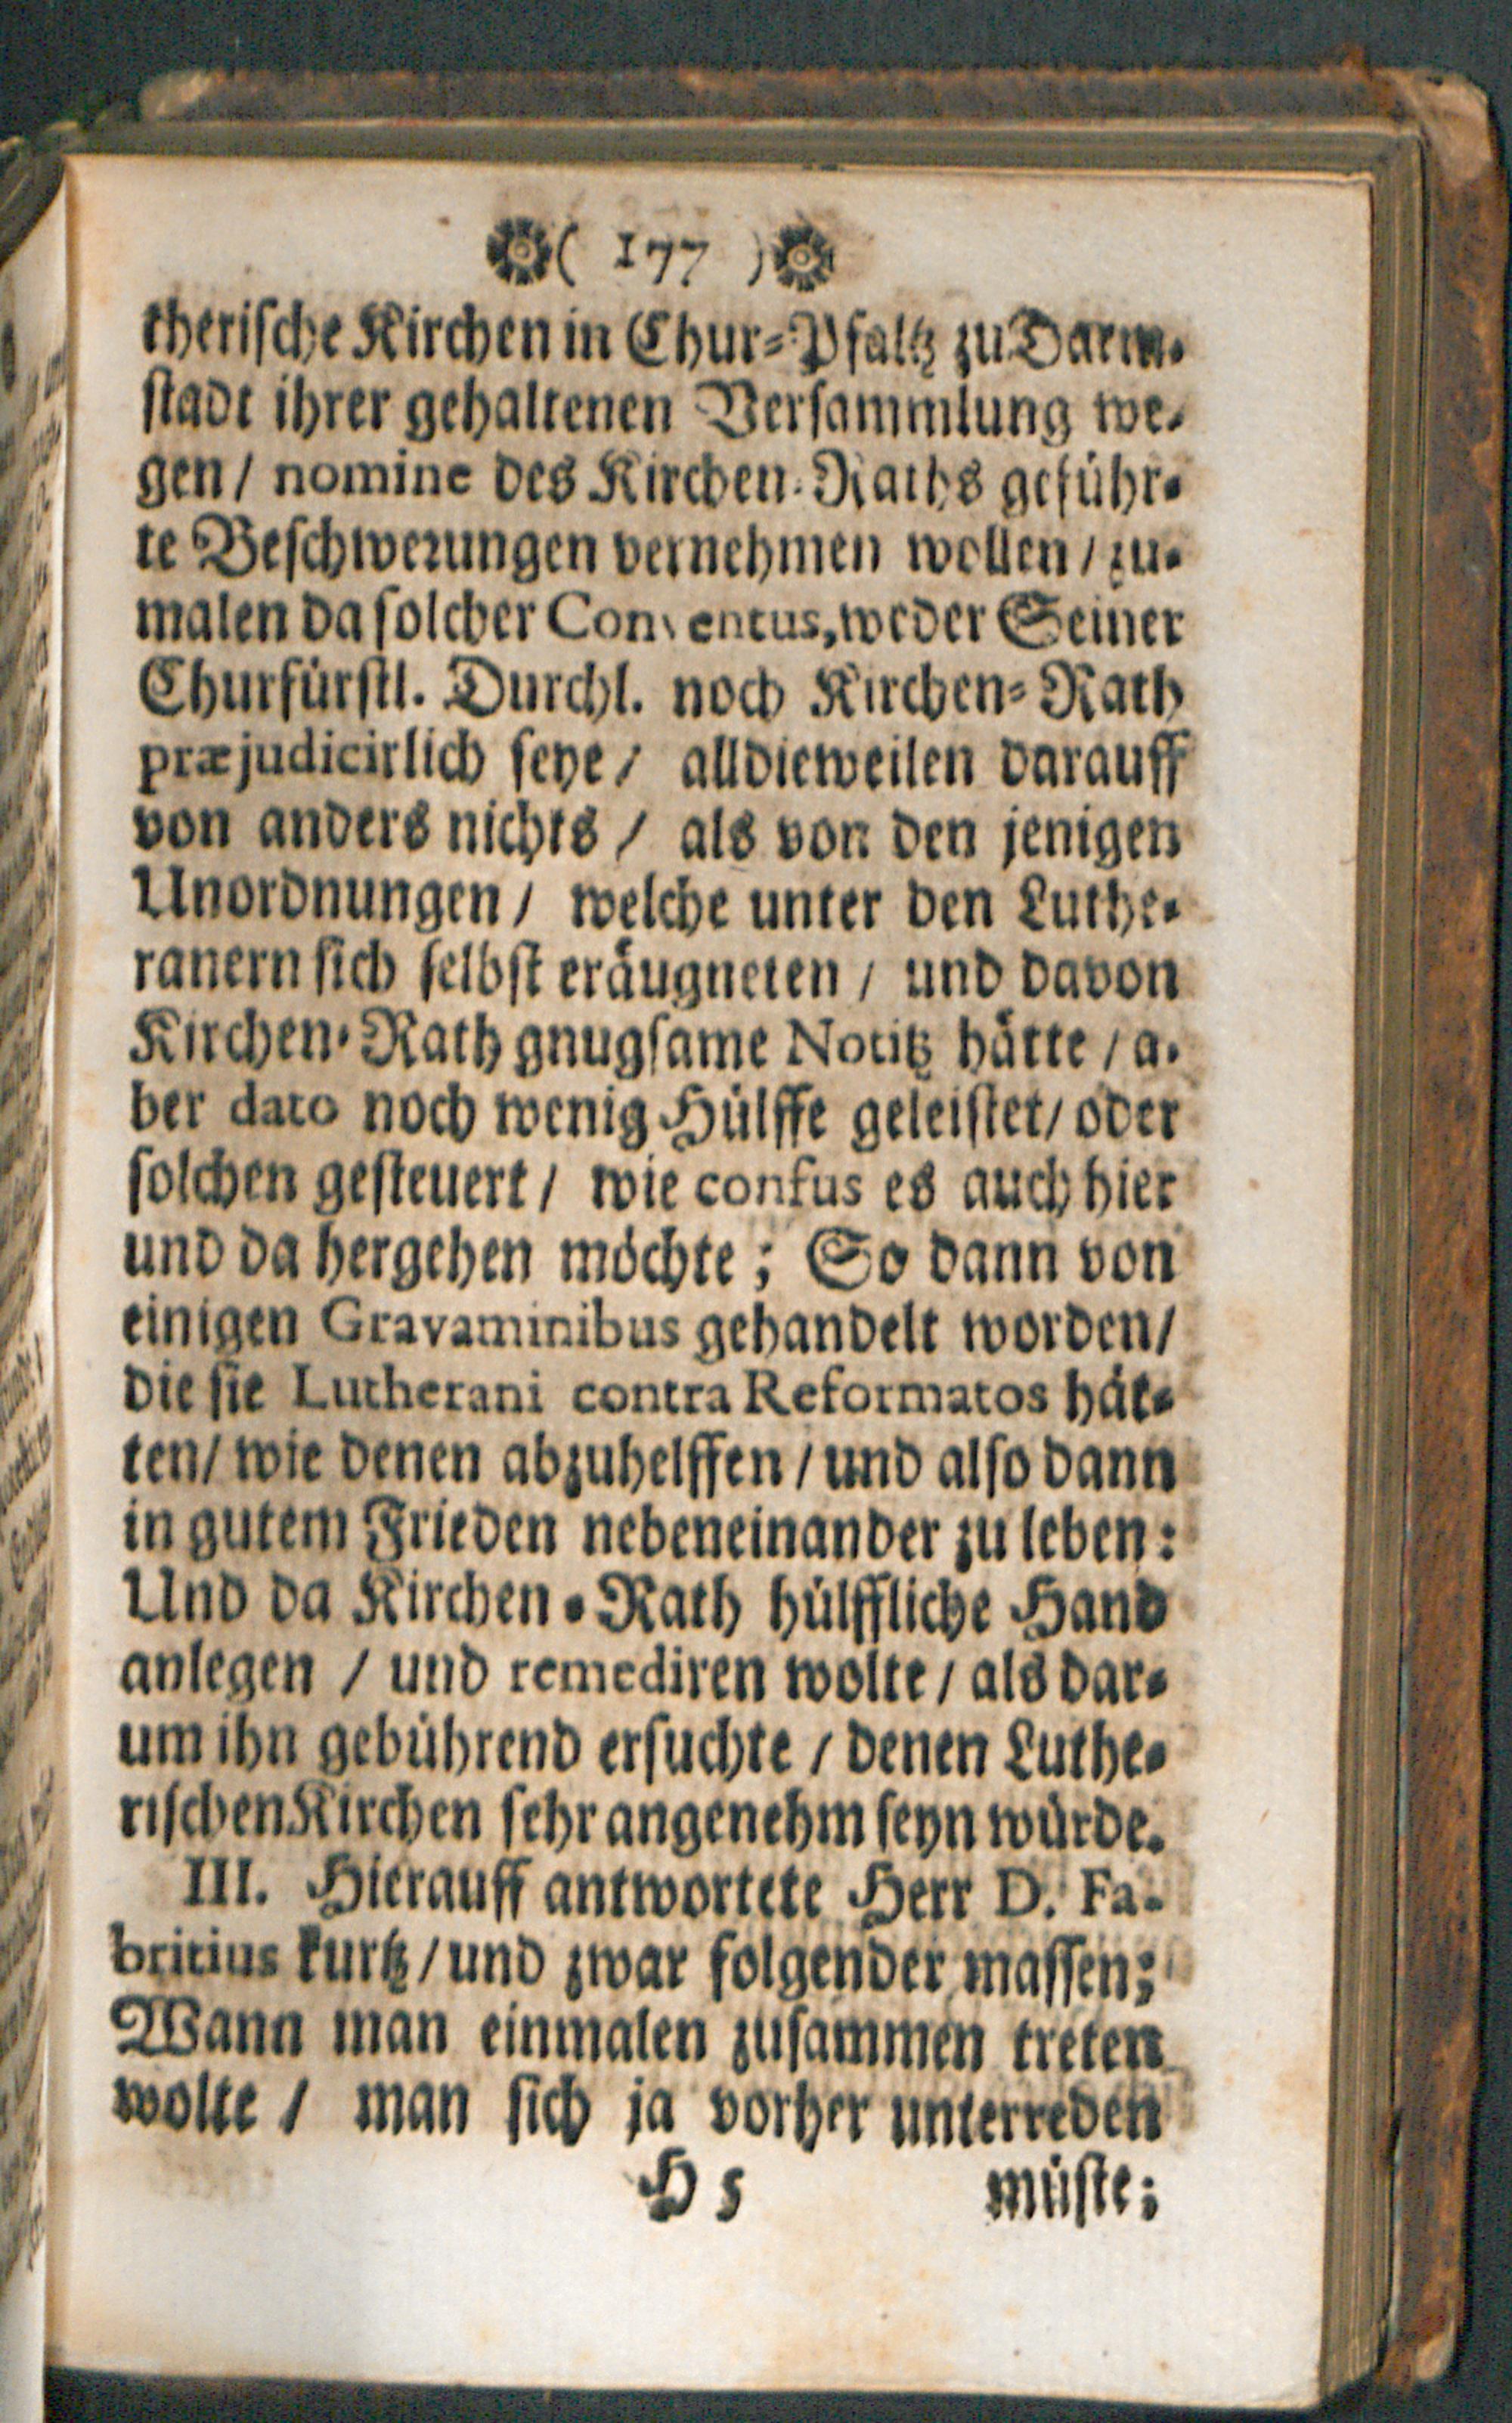 ( 177 )
therische Kirchen in Chur-Pfaltz zu Darm-
stadt ihrer gehaltenen Versammlung we-
gen / nomine des Kirchen-Raths geführ-
te Beschwerungen vernehmen wollen / zu-
malen da solcher Conventus, weder Seiner
Churfürstl. Durchl. noch Kirchen-Rath
præjudicirlich seye / alldieweilen darauff
von anders nichts / als von den jenigen
Unordnungen / welche unter den Luthe-
ranern sich selbst eräugneten / und davon
Kirchen-Rath gnugsame Notitz hätte / a-
ber dato noch wenig Hülffe geleistet / oder
solchen gesteuert / wie confus es auch hier
und da hergehen möchte; So dann von
einigen Gravaminibus gehandelt worden /
die sie Lutherani contra Reformatos hät-
ten / wie denen abzuhelffen / und also dann
in gutem Frieden nebeneinander zu leben:
Und da Kirchen-Rath hülffliche Hand
anlegen / und remediren wolte / als dar-
um ihn gebührend ersuchte / denen Luthe-
rischen Kirchen sehr angenehm seyn würde.
III. Hierauff antwortete Herr D. Fa-
britius kurtz / und zwar folgender massen;
Wann man einmalen zusammen treten
wolte / man sich ja vorher unterreden
H 5 müste;